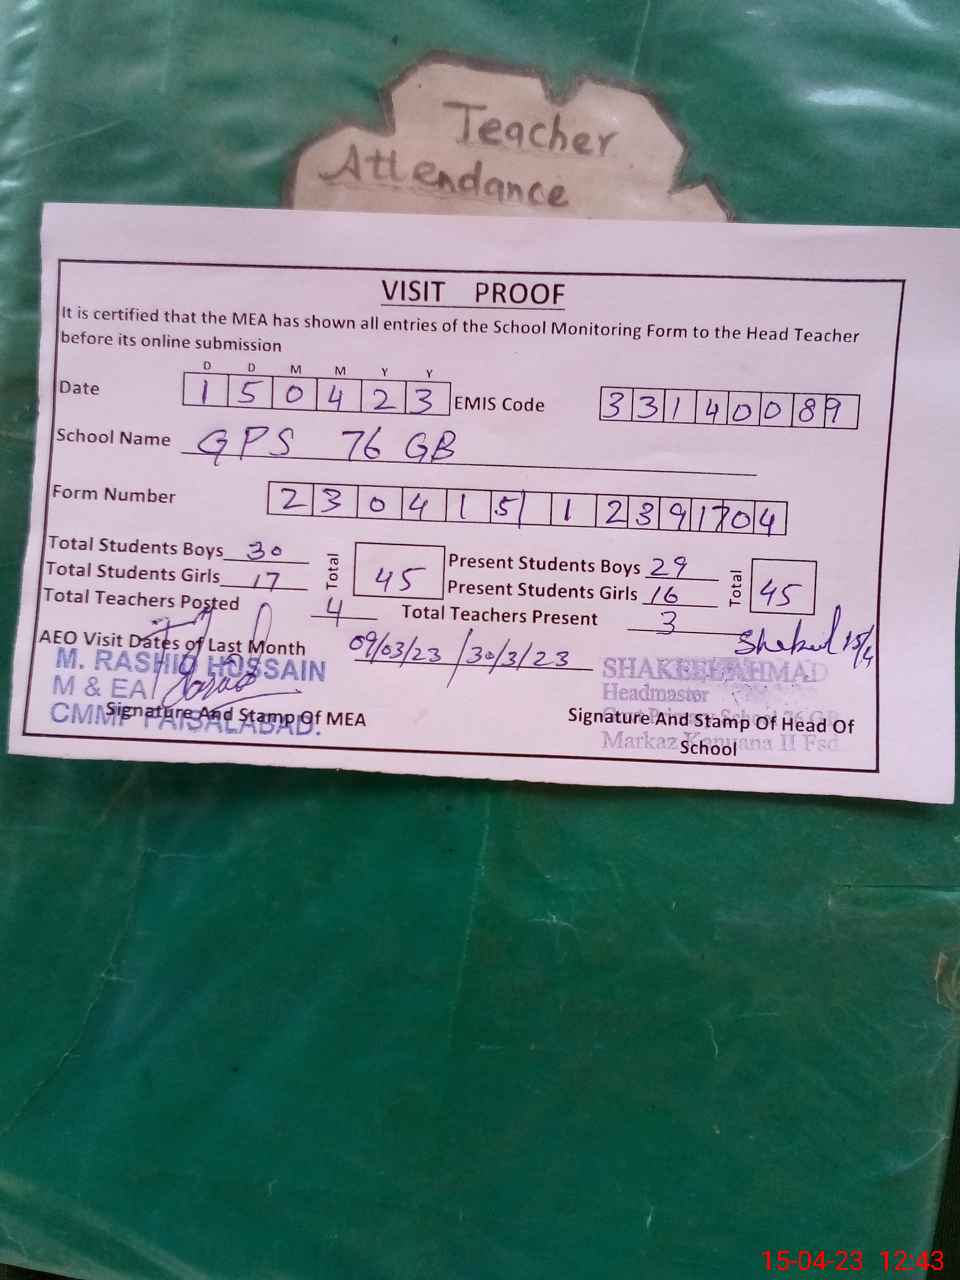 Teacher
Attendance
VISIT PROOF
It is certified that the MEA has shown all entries of the School Monitoring Form to the Head Teacher
before its online submission
D D M M Y Y
Date 1 5 0 4 2 3 EMIS Code 3 3 1 4 0 0 8 9
School Name GPS 76 GB
Form Number 2 3 0 4 1 5 1 2 3 9 1 7 0 4
Total Students Boys 30 Total 45 Present Students Boys 29 Total 45
Total Students Girls 17 Present Students Girls 16
Total Teachers Posted 4 Total Teachers Present 3
AEO Visit Dates of Last Month 09/03/23 / 30/3/23 Shakeel 15/4
M. RASHID HUSSAIN SHAKEEL AHMAD
M & EA Headmaster
CMMF FAISALABAD.
Signature And Stamp Of MEA Signature And Stamp Of Head Of
School
Markaz Kanuana II Fsd
15-04-23 12:43